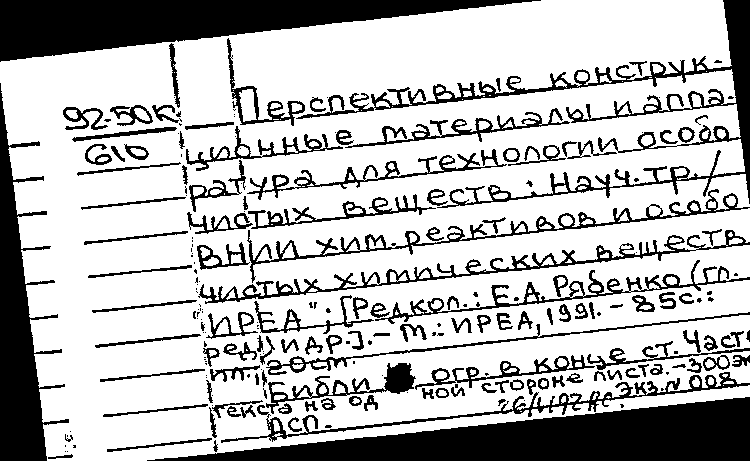 92-50к
610
Перспективные конструк-
ционные материалы и аппа-
ратура для технологии особо
чистых веществ : Науч. тр. /
ВНИИ хим. реактивов и особо
чистых химических веществ
"ИРЕА"; [Редкол.: Е.А. Рябенко (гл.
ред.) и др.]. - М.: ИРЕА, 1991. - 85с.:
ил.; 20см.
Библи огр. в конце ст. Часть
текста на од ной стороне листа. - 300 эк
ДСП. Экз. N 008